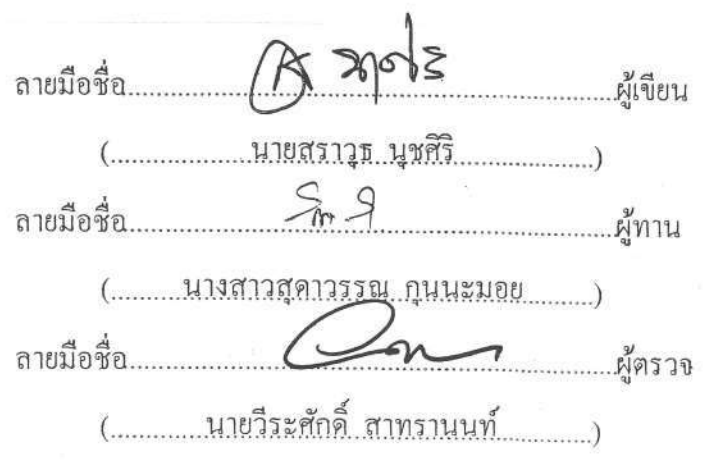 ลายมือชื่อ........................................ผู้เขียน
(............นายสราวุธ นุชศิริ............)
ลายมือชื่อ........................................ผู้ทาน
(.........นางสาวสุดาวรรณ กุนนะมอย.........)
ลายมือชื่อ........................................ผู้ตรวจ
(............นายวีระศักดิ์ สาทรานนท์............)